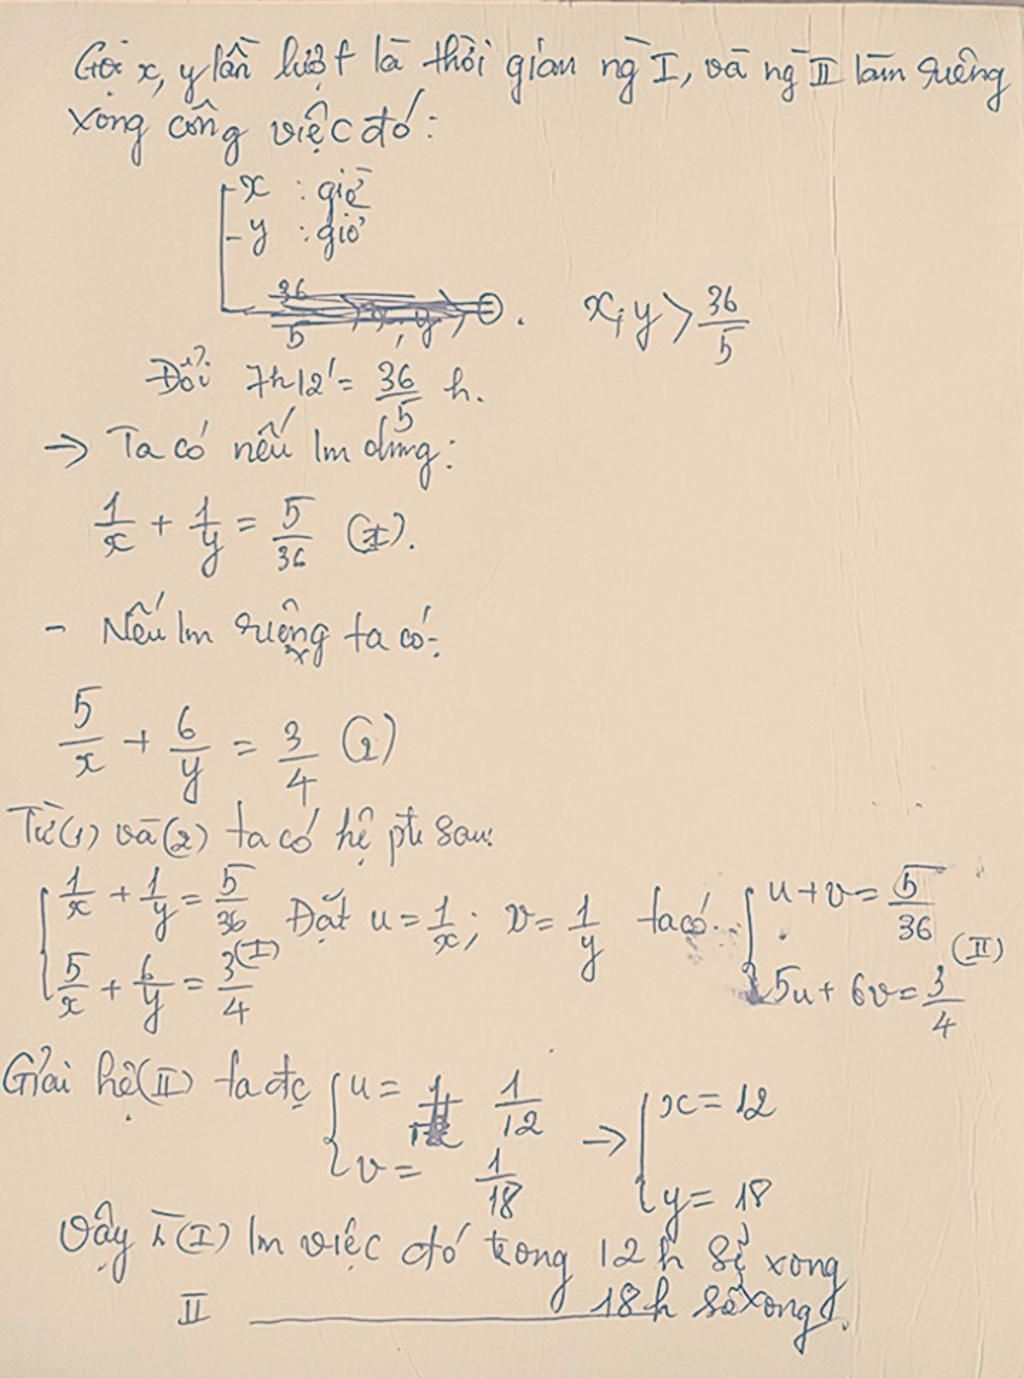 Gọi x, y lần lượt là thời gian ng I, và ng II làm riêng
xong công việc đó:
- x : giờ
- y : giờ
x; y > 36/5
Đổi 7h12' = 36/5 h.
→ Ta có nếu lm chung:
1/x + 1/y = 5/36 (1).
- Nếu lm riêng ta có:
5/x + 6/y = 3/4 (2)
Từ (1) và (2) ta có hệ pt sau:
{ 1/x + 1/y = 5/36
5/x + 6/y = 3/4 (I) Đặt u = 1/x; v = 1/y ta có: { u + v = 5/36
5u + 6v = 3/4 (II)
Giải hệ (II) ta đc { u = 1/12
v = 1/18 → { x = 12
y = 18
Vậy (I) lm việc đó trong 12h sẽ xong
II ———— 18h sẽ xong.